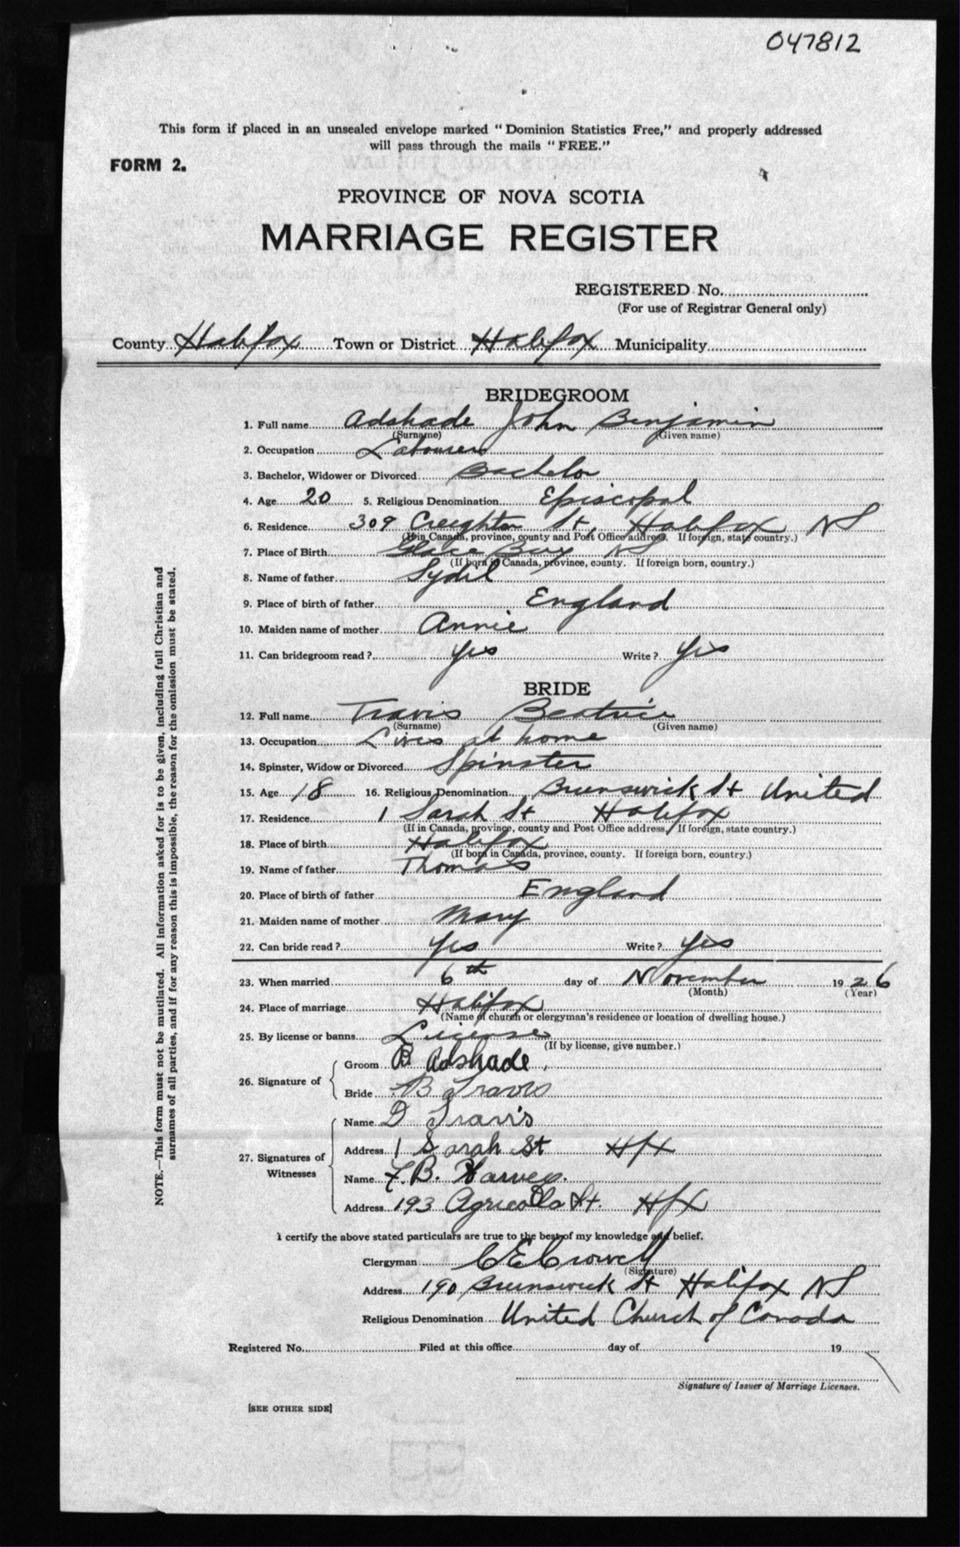 047812
This form if placed in an unsealed envelope marked "Dominion Statistics Free," and properly addressed
will pass through the mails "FREE."
FORM 2.
PROVINCE OF NOVA SCOTIA
MARRIAGE REGISTER
REGISTERED No.
(For use of Registrar General only)
County Halifax Town or District Halifax Municipality
BRIDEGROOM
1. Full name Adshade John Benjamin
(Surname) (Given name)
2. Occupation Labourer
3. Bachelor, Widower or Divorced Bachelor
4. Age 20 5. Religious Denomination Episcopal
6. Residence 309 Creighton St, Halifax NS
(If in Canada, province, county and Post Office address. If foreign, state country.)
7. Place of Birth Glace Bay NS
(If born in Canada, province, county. If foreign born, country.)
8. Name of father
9. Place of birth of father England
10. Maiden name of mother Annie
11. Can bridegroom read? Yes Write? Yes
BRIDE
12. Full name Travis Beatrice
(Surname) (Given name)
13. Occupation Lives at home
14. Spinster, Widow or Divorced Spinster
15. Age 18 16. Religious Denomination Brunswick St United
17. Residence 1 Sarah St Halifax
(If in Canada, province, county and Post Office address, If foreign, state country.)
18. Place of birth Halifax
(If born in Canada, province, county. If foreign born, country.)
19. Name of father Thomas
20. Place of birth of father England
21. Maiden name of mother Mary
22. Can bride read? Yes Write? Yes
23. When married 6th day of November 1926
(Month) (Year)
24. Place of marriage Halifax
(Name of church or clergyman's residence or location of dwelling house.)
25. By license or banns License
(If by license, give number.)
26. Signature of
Groom B Adshade
Bride B Travis
27. Signatures of Witnesses
Name D Travis
Address 1 Sarah St Hfx
Name F.B. Harvey.
Address 193 Agricola St. Hfx
I certify the above stated particulars are true to the best of my knowledge and belief.
Clergyman C E Crowell
(Signature)
Address 190 Brunswick St Halifax NS
Religious Denomination United Church of Canada
Registered No. Filed at this office day of 19
Signature of Issuer of Marriage Licenses.
[SEE OTHER SIDE]
NOTE.—This form must not be mutilated. All information asked for is to be given, including full Christian and
surnames of all parties, and if for any reason this is impossible, the reason for the omission must be stated.